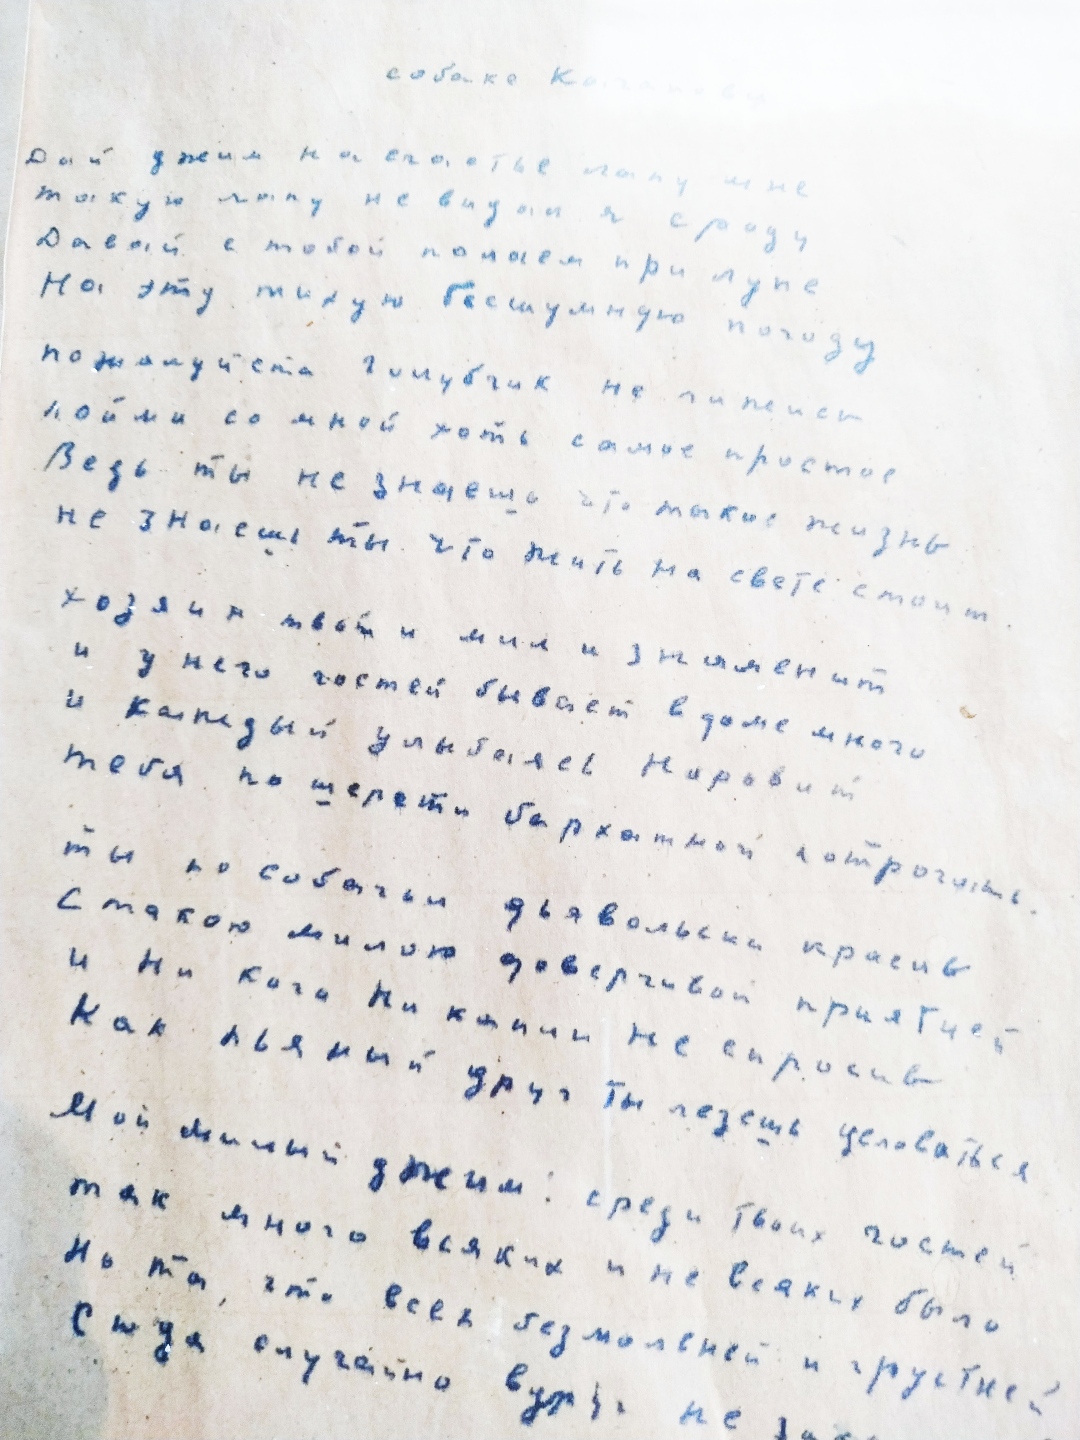 собаке Качалову
Дай джим на счастье лапу мне
такую лапу не видал я сроду
Давай с тобой полаем при луне
На эту тихую бесшумную погоду
пожалуйста голубчик не лижись
пойми со мной хоть самое простое
Ведь ты не знаешь что такое жизнь
не знаешь ты что жить на свете стоит.
хозяин твой и мил и знаменит
и у него гостей бывает в доме много
и каждый улыбаясь норовит
тебя по шерсти бархатной потрогать.
ты по собачьи дьявольски красив
С такою милою доверчивой приятцей
и Ни кого Ни капли не спросив
Как пьяный друг ты лезешь целоваться
Мой милый джим: среди твоих гостей
так много всяких и не всяких было
Но та, что всех безмолвней и грустней
Сюда случайно вдруг не